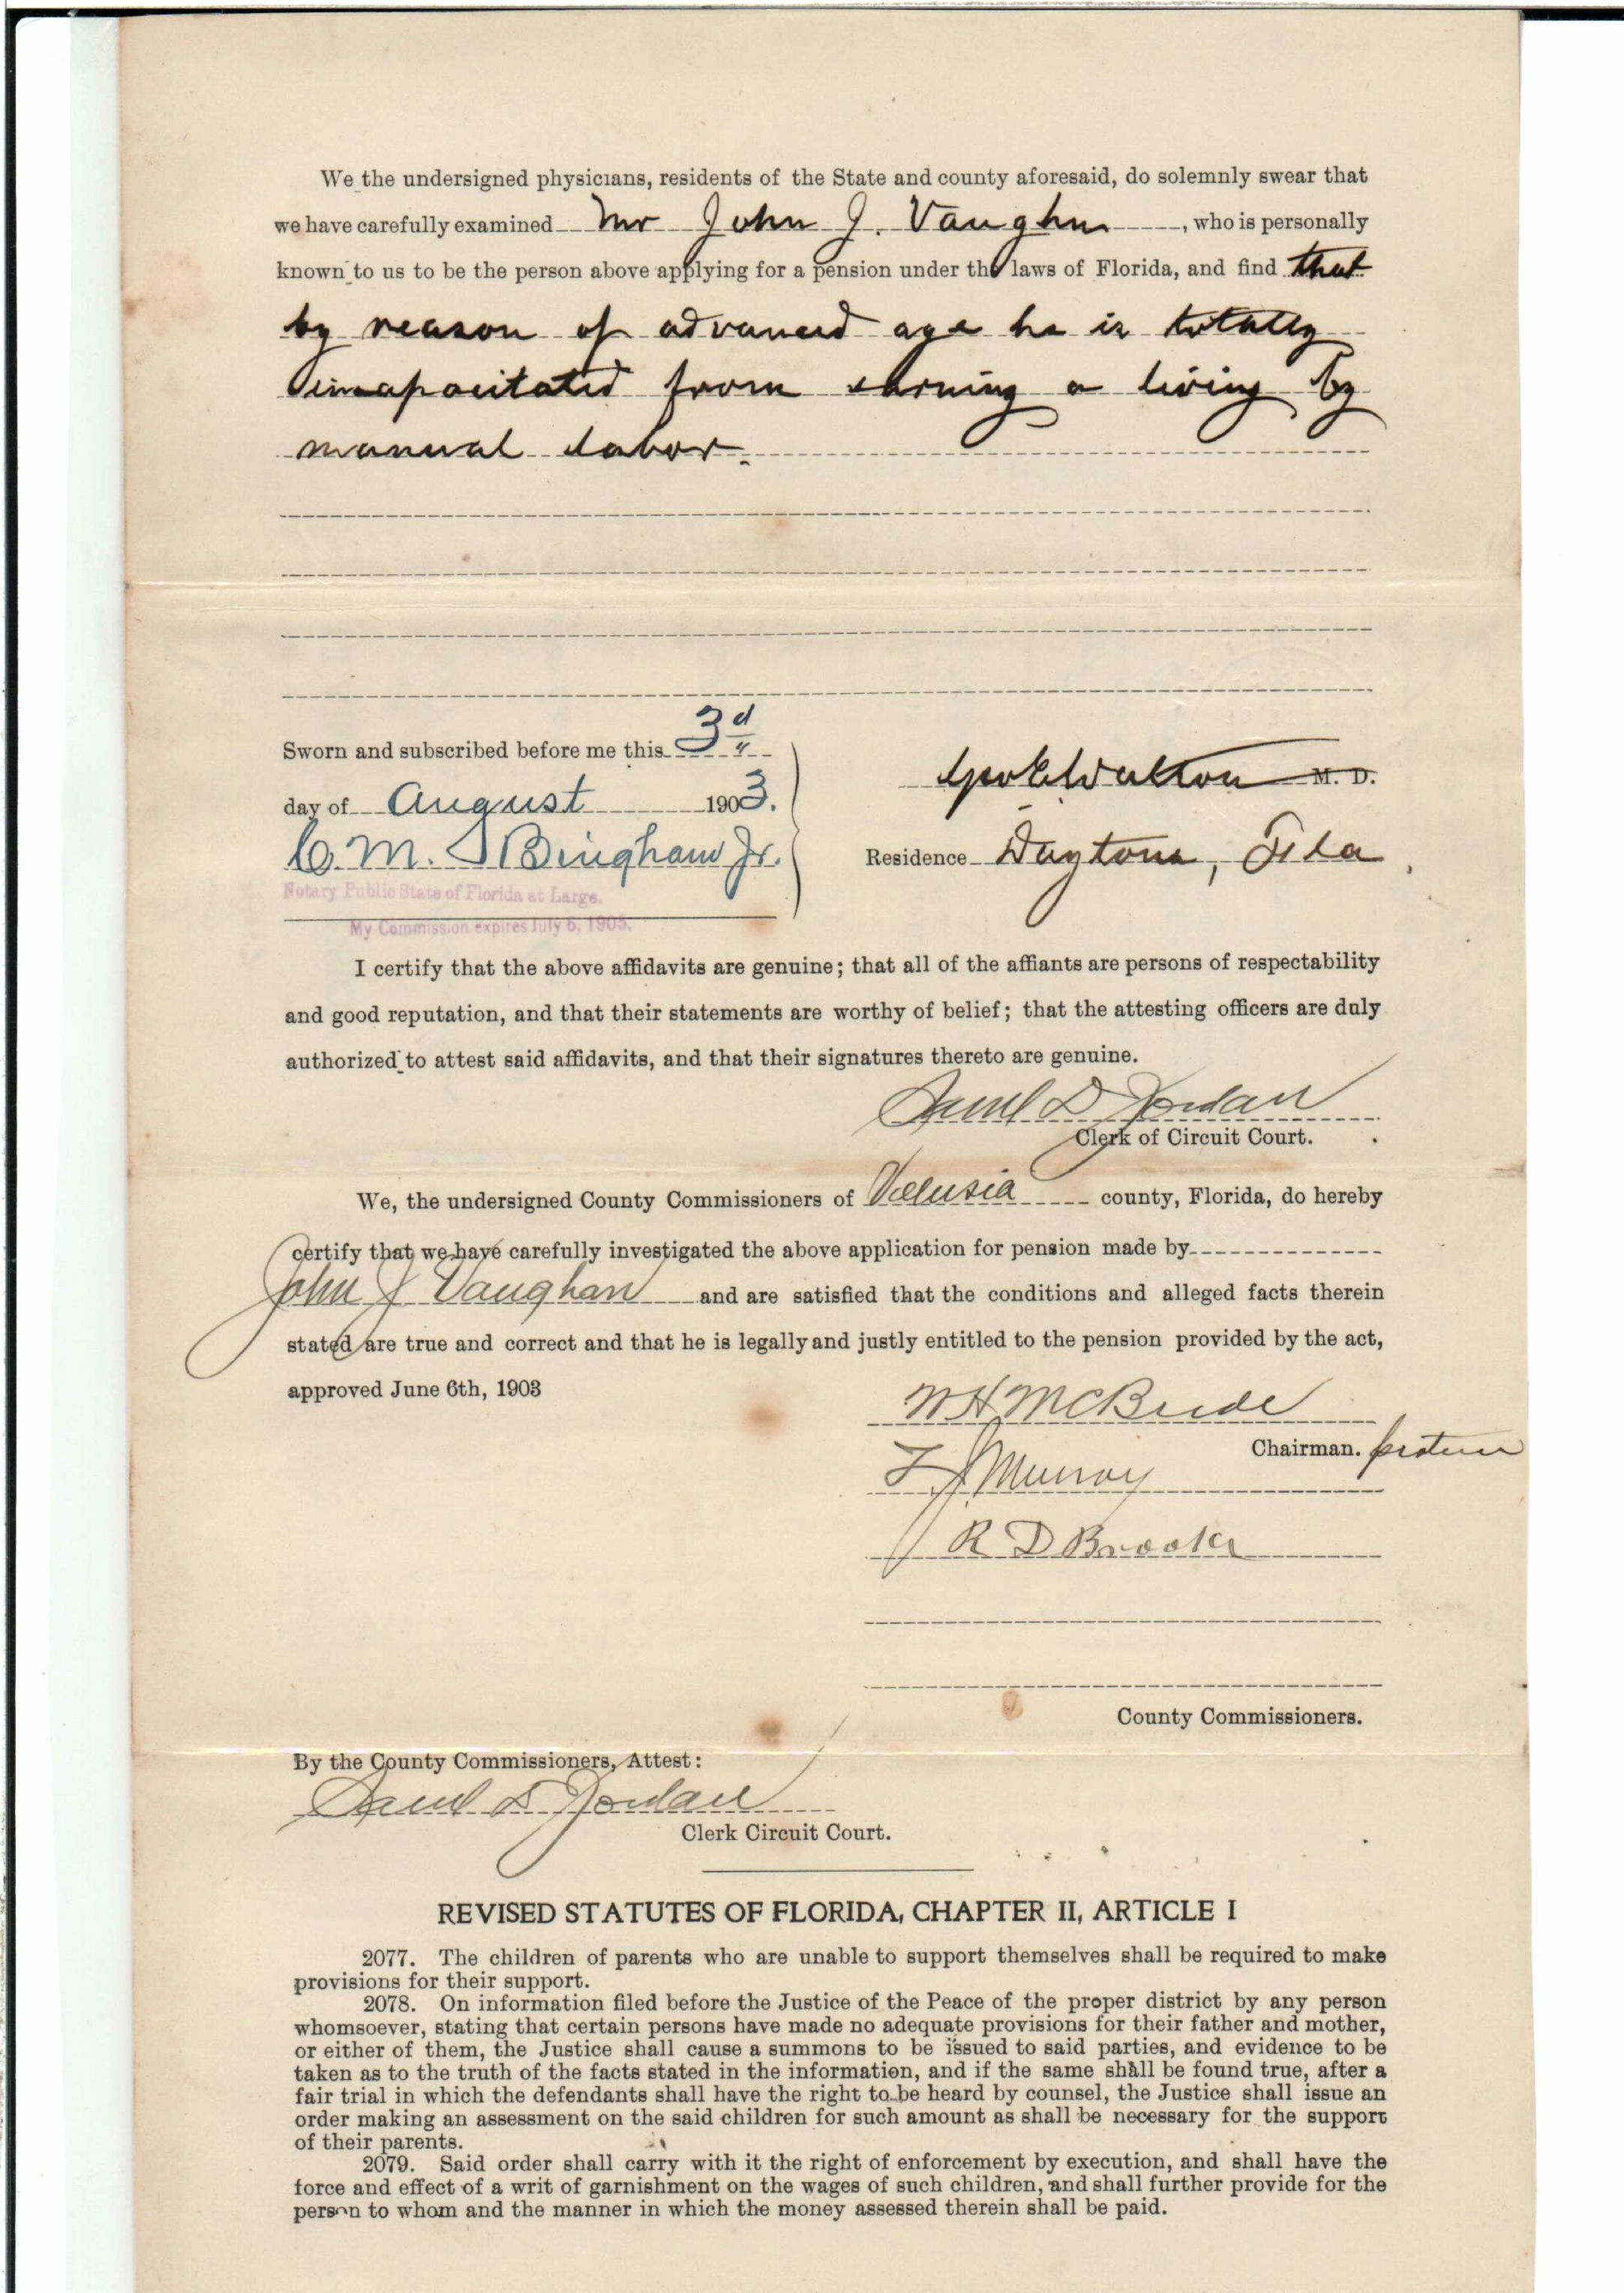 We the undersigned physicians, residents of the State and county aforesaid, do solemnly swear that
we have carefully examined Mr John J. Vaughn, who is personally
known to us to be the person above applying for a pension under the laws of Florida, and find that
by reason of advanced age he is totally
incapacitated from earning a living by
manual labor.
Sworn and subscribed before me this 3d
day of August 1903.
C. M. Bingham Jr.
Notary Public State of Florida at Large.
My Commission expires July 6, 1905.
M. D.
Residence Daytona, Fla
I certify that the above affidavits are genuine; that all of the affiants are persons of respectability
and good reputation, and that their statements are worthy of belief; that the attesting officers are duly
authorized to attest said affidavits, and that their signatures thereto are genuine.
Saml D Jordan
Clerk of Circuit Court.
We, the undersigned County Commissioners of Volusia county, Florida, do hereby
certify that we have carefully investigated the above application for pension made by
John J Vaughan and are satisfied that the conditions and alleged facts therein
stated are true and correct and that he is legally and justly entitled to the pension provided by the act,
approved June 6th, 1903
W H McBride
Chairman. protem
F J Murray
R D Brooks
County Commissioners.
By the County Commissioners, Attest:
Saml D Jordan
Clerk Circuit Court.
REVISED STATUTES OF FLORIDA, CHAPTER II, ARTICLE I
2077. The children of parents who are unable to support themselves shall be required to make
provisions for their support.
2078. On information filed before the Justice of the Peace of the proper district by any person
whomsoever, stating that certain persons have made no adequate provisions for their father and mother,
or either of them, the Justice shall cause a summons to be issued to said parties, and evidence to be
taken as to the truth of the facts stated in the information, and if the same shall be found true, after a
fair trial in which the defendants shall have the right to be heard by counsel, the Justice shall issue an
order making an assessment on the said children for such amount as shall be necessary for the support
of their parents.
2079. Said order shall carry with it the right of enforcement by execution, and shall have the
force and effect of a writ of garnishment on the wages of such children, and shall further provide for the
person to whom and the manner in which the money assessed therein shall be paid.